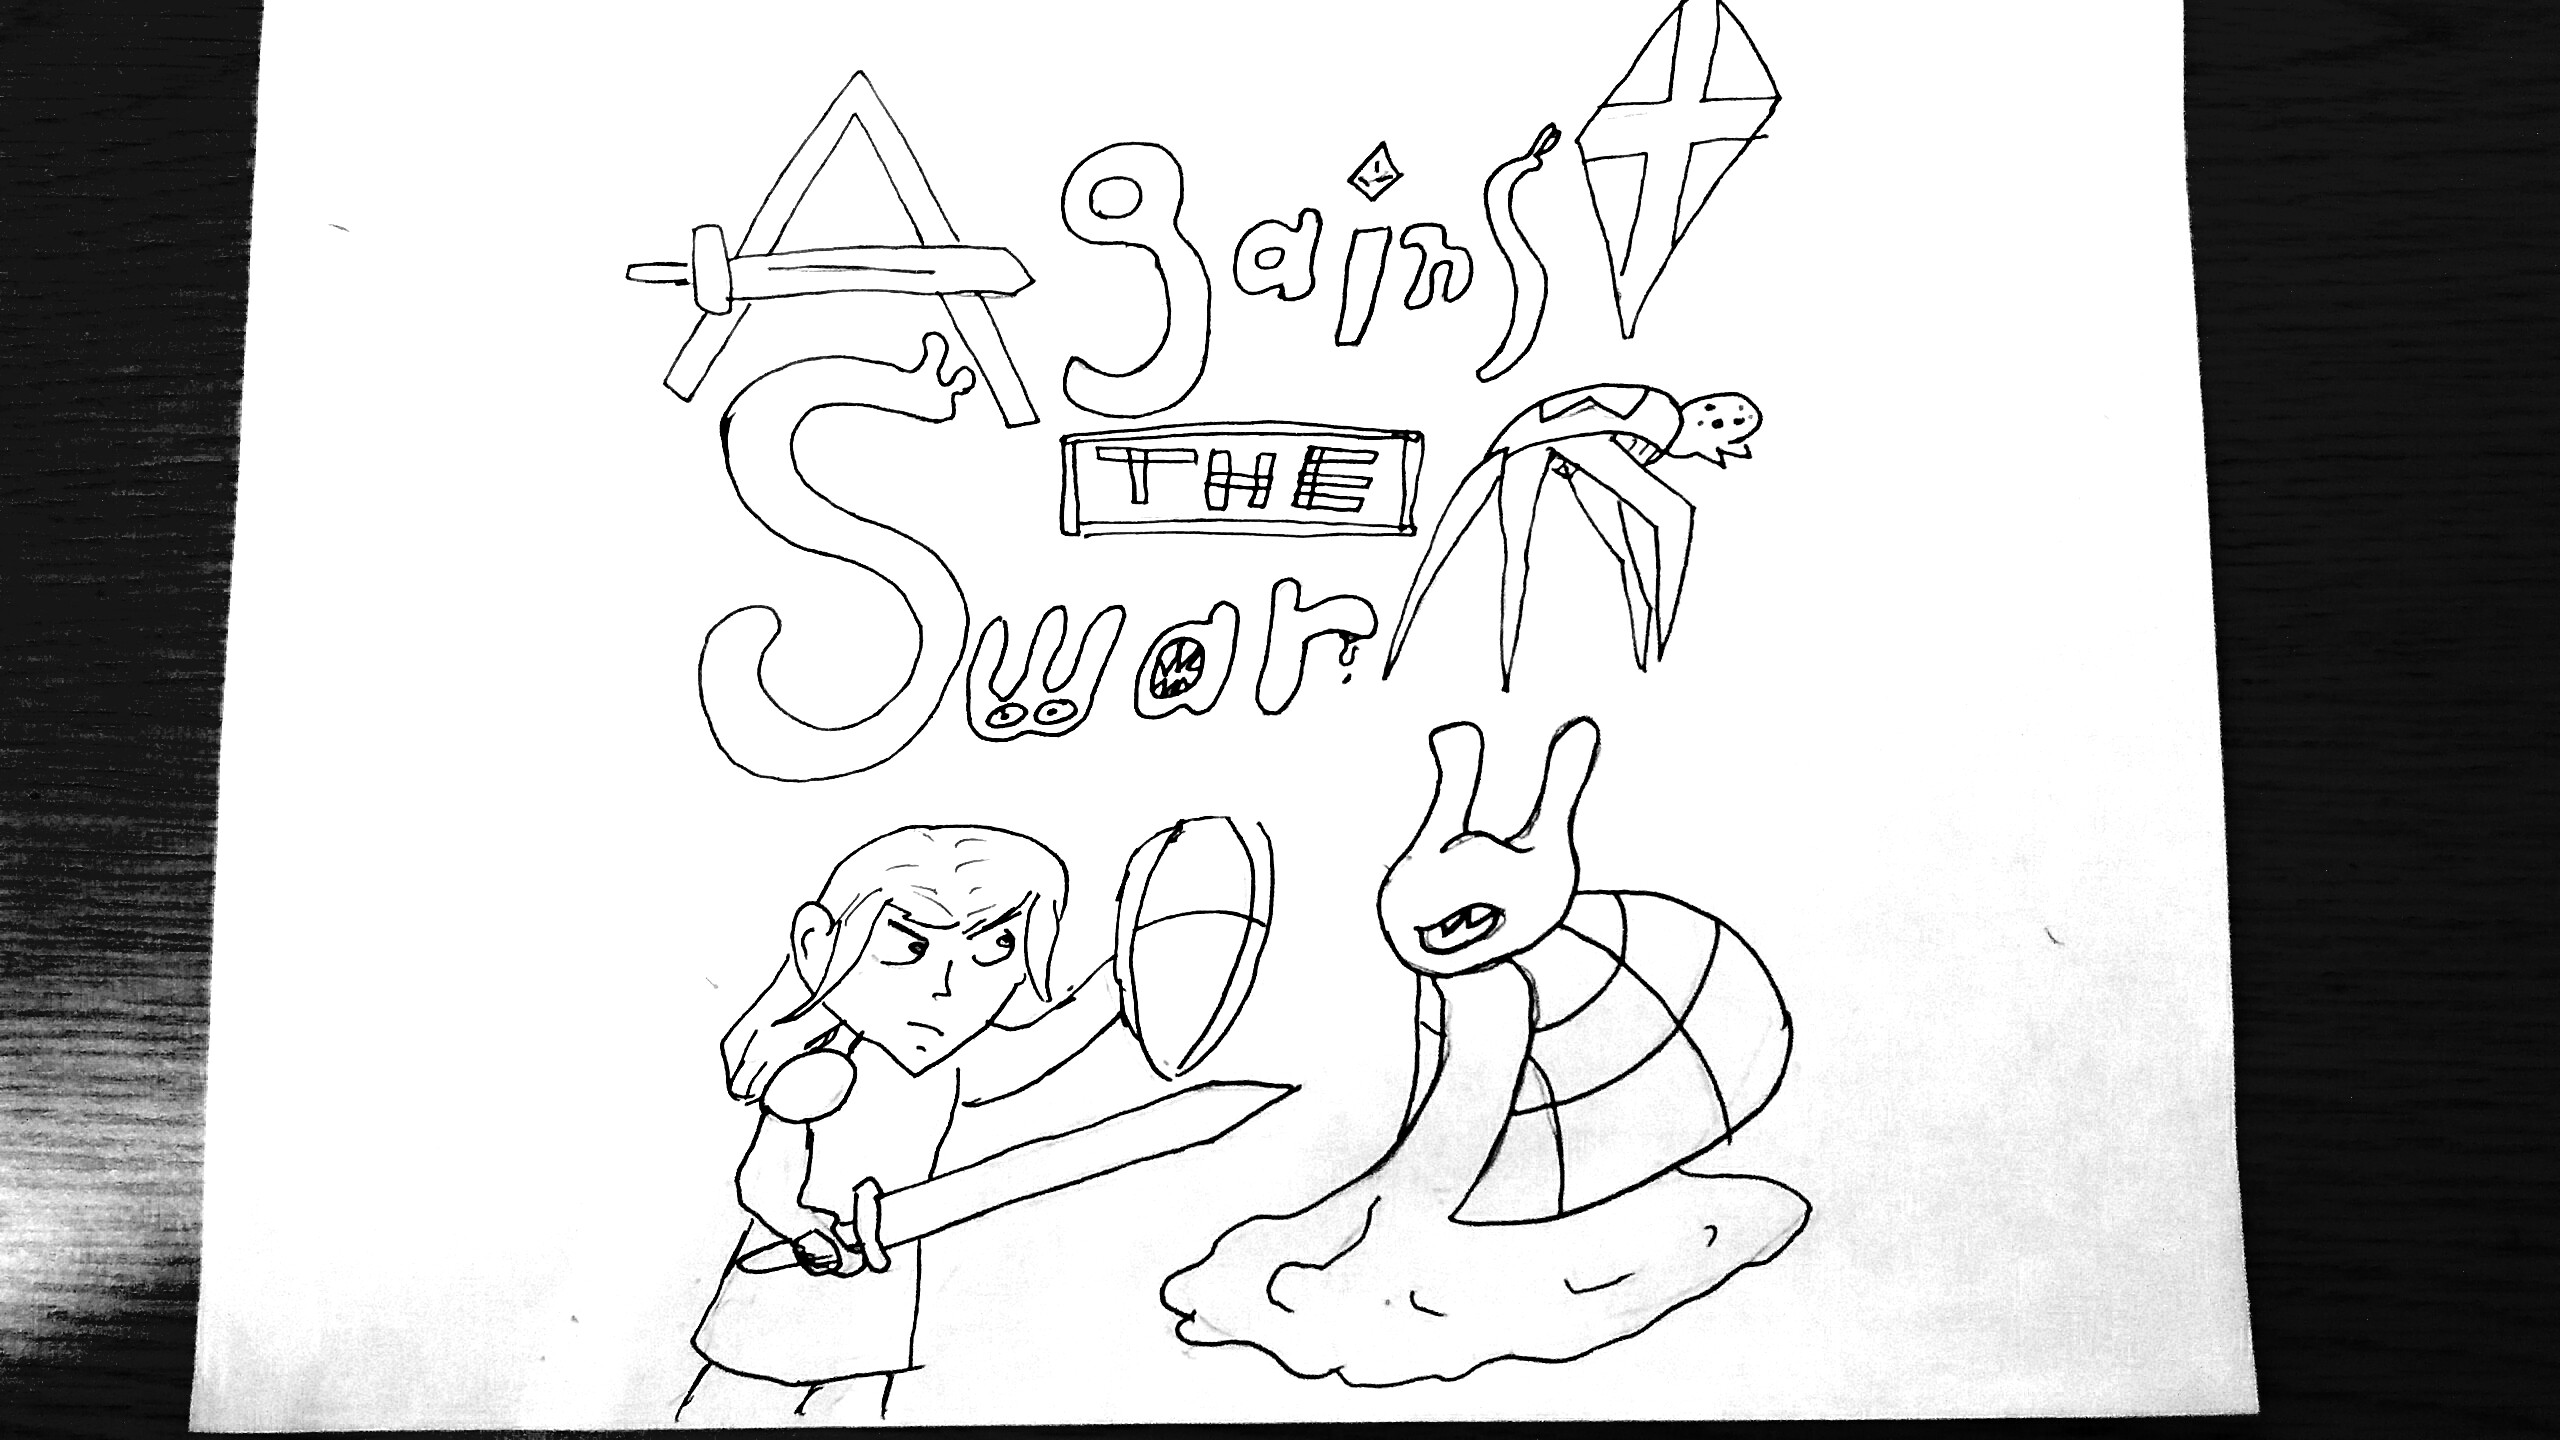 Against
THE
Swarm